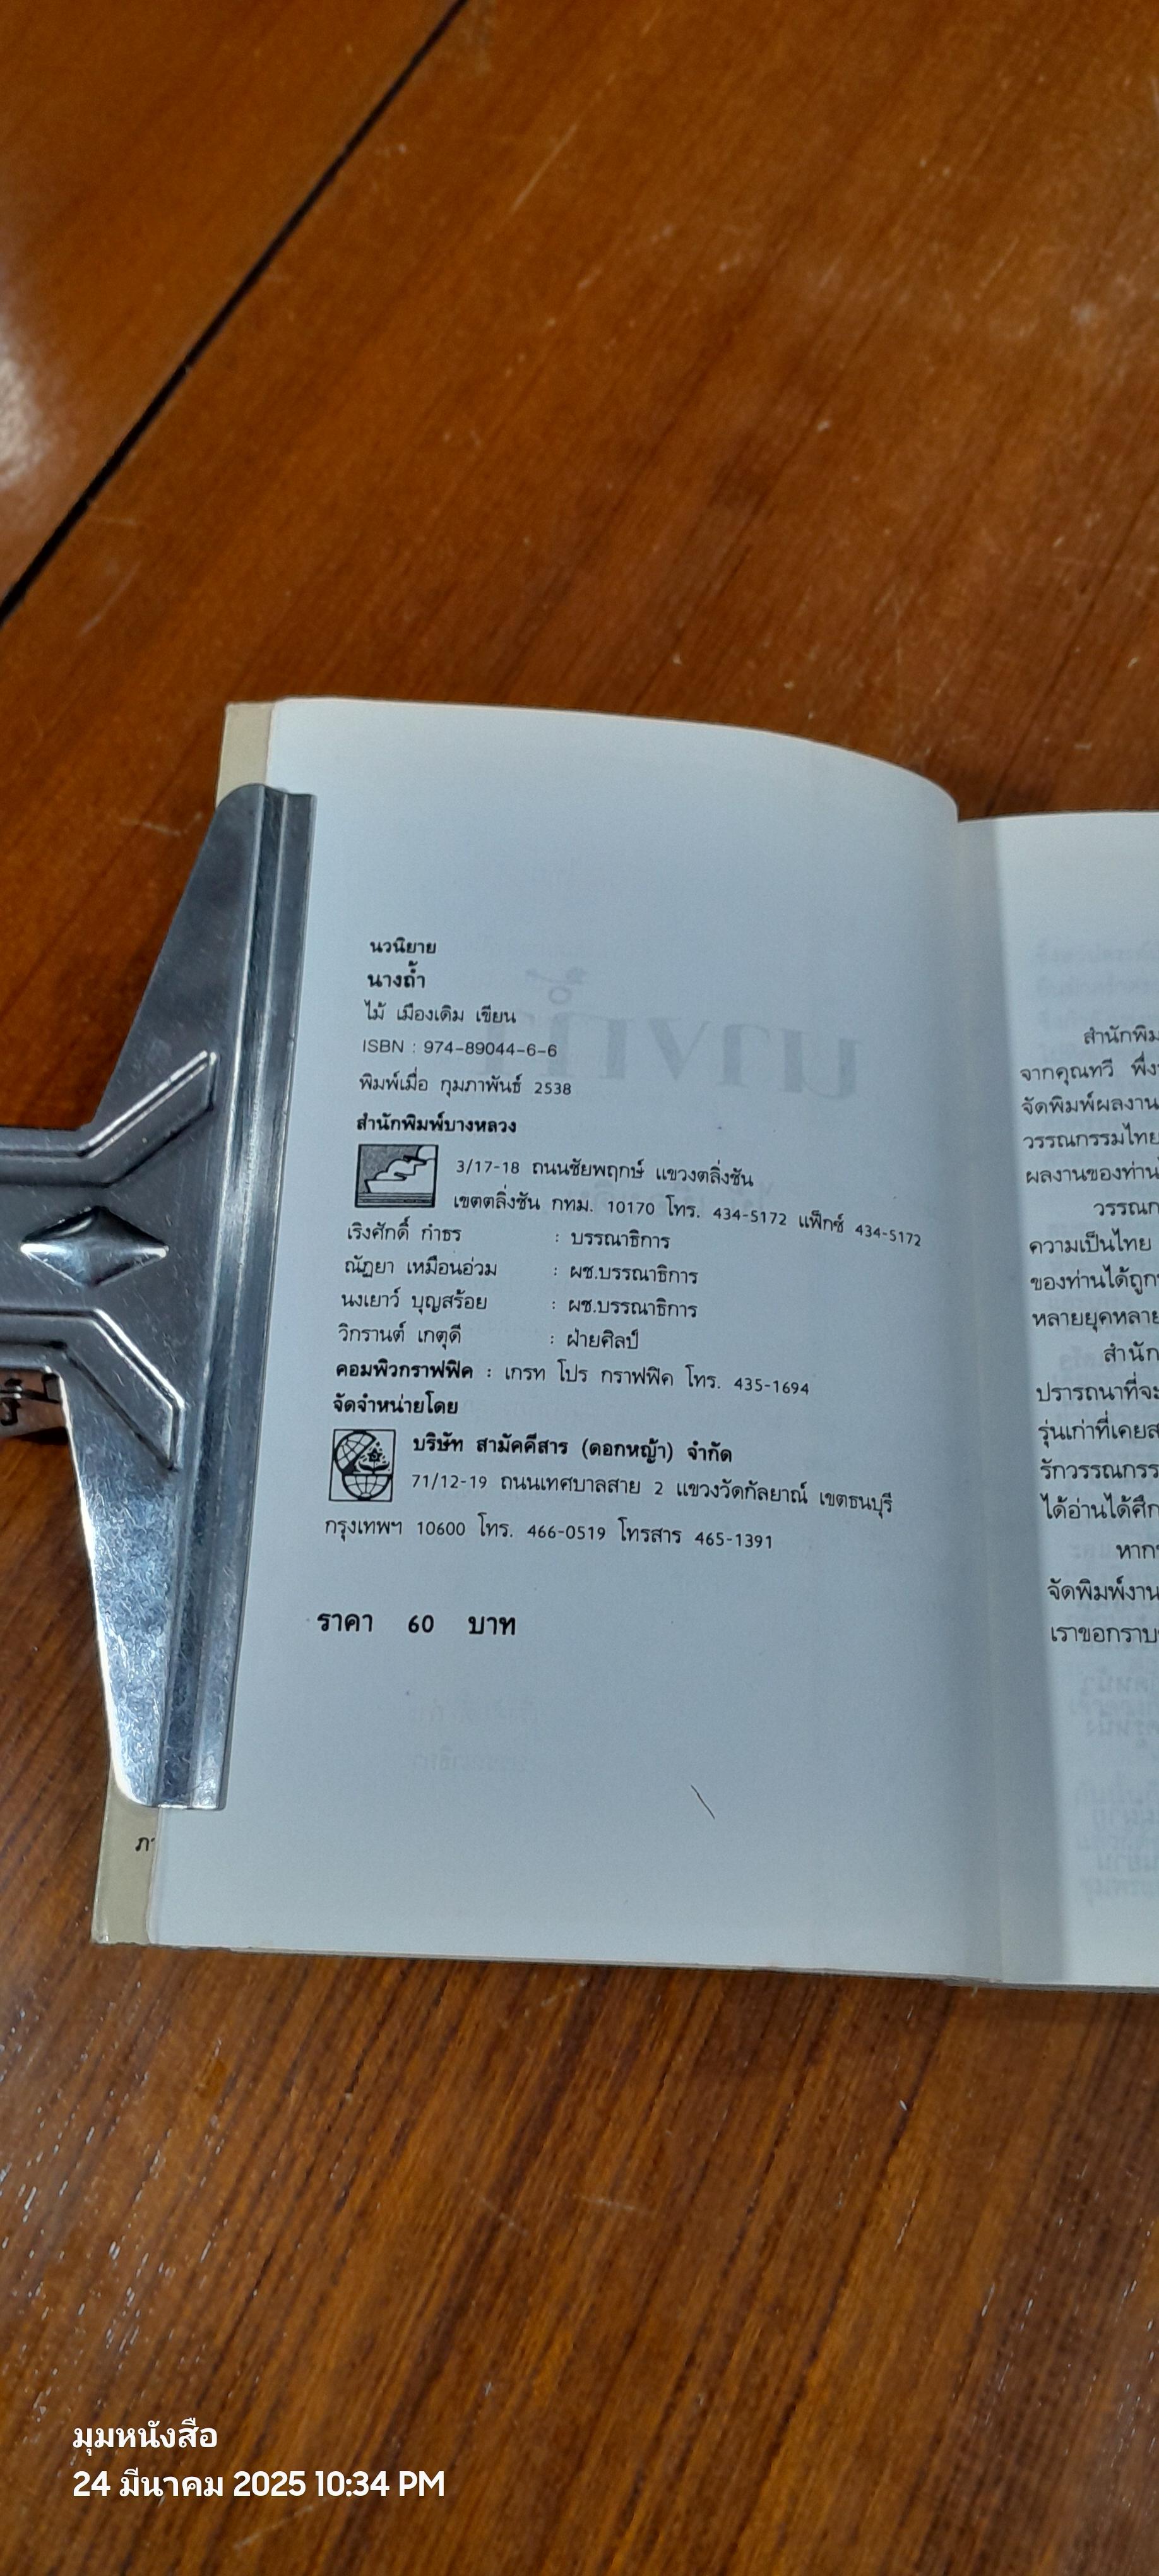 นวนิยาย
นางถ้ำ
ไม้ เมืองเดิม เขียน
ISBN : 974-89044-6-6
พิมพ์เมื่อ กุมภาพันธ์ 2538
สำนักพิมพ์บางหลวง
3/17-18 ถนนชัยพฤกษ์ แขวงตลิ่งชัน
เขตตลิ่งชัน กทม. 10170 โทร. 434-5172 แฟ็กซ์ 434-5172
เริงศักดิ์ กำธร : บรรณาธิการ
ณัฏยา เหมือนอ่วม : ผช.บรรณาธิการ
นงเยาว์ บุญสร้อย : ผช.บรรณาธิการ
วิกรานต์ เกตุดี : ฝ่ายศิลป์
คอมพิวกราฟฟิค : เกรท โปร กราฟฟิค โทร. 435-1694
จัดจำหน่ายโดย
บริษัท สามัคคีสาร (ดอกหญ้า) จำกัด
71/12-19 ถนนเทศบาลสาย 2 แขวงวัดกัลยาณ์ เขตธนบุรี
กรุงเทพฯ 10600 โทร. 466-0519 โทรสาร 465-1391
ราคา 60 บาท
สำนักพิม
จากคุณทวี พึ่ง
จัดพิมพ์ผลงาน
วรรณกรรมไทย
ผลงานของท่าน
วรรณก
ความเป็นไทย
ของท่านได้ถูก
หลายยุคหลาย
สำนัก
ปรารถนาที่จะ
รุ่นเก่าที่เคยส
รักวรรณกรร
ได้อ่านได้ศึก
หาก
จัดพิมพ์งาน
เราขอกราบ
มุมหนังสือ
24 มีนาคม 2025 10:34 PM